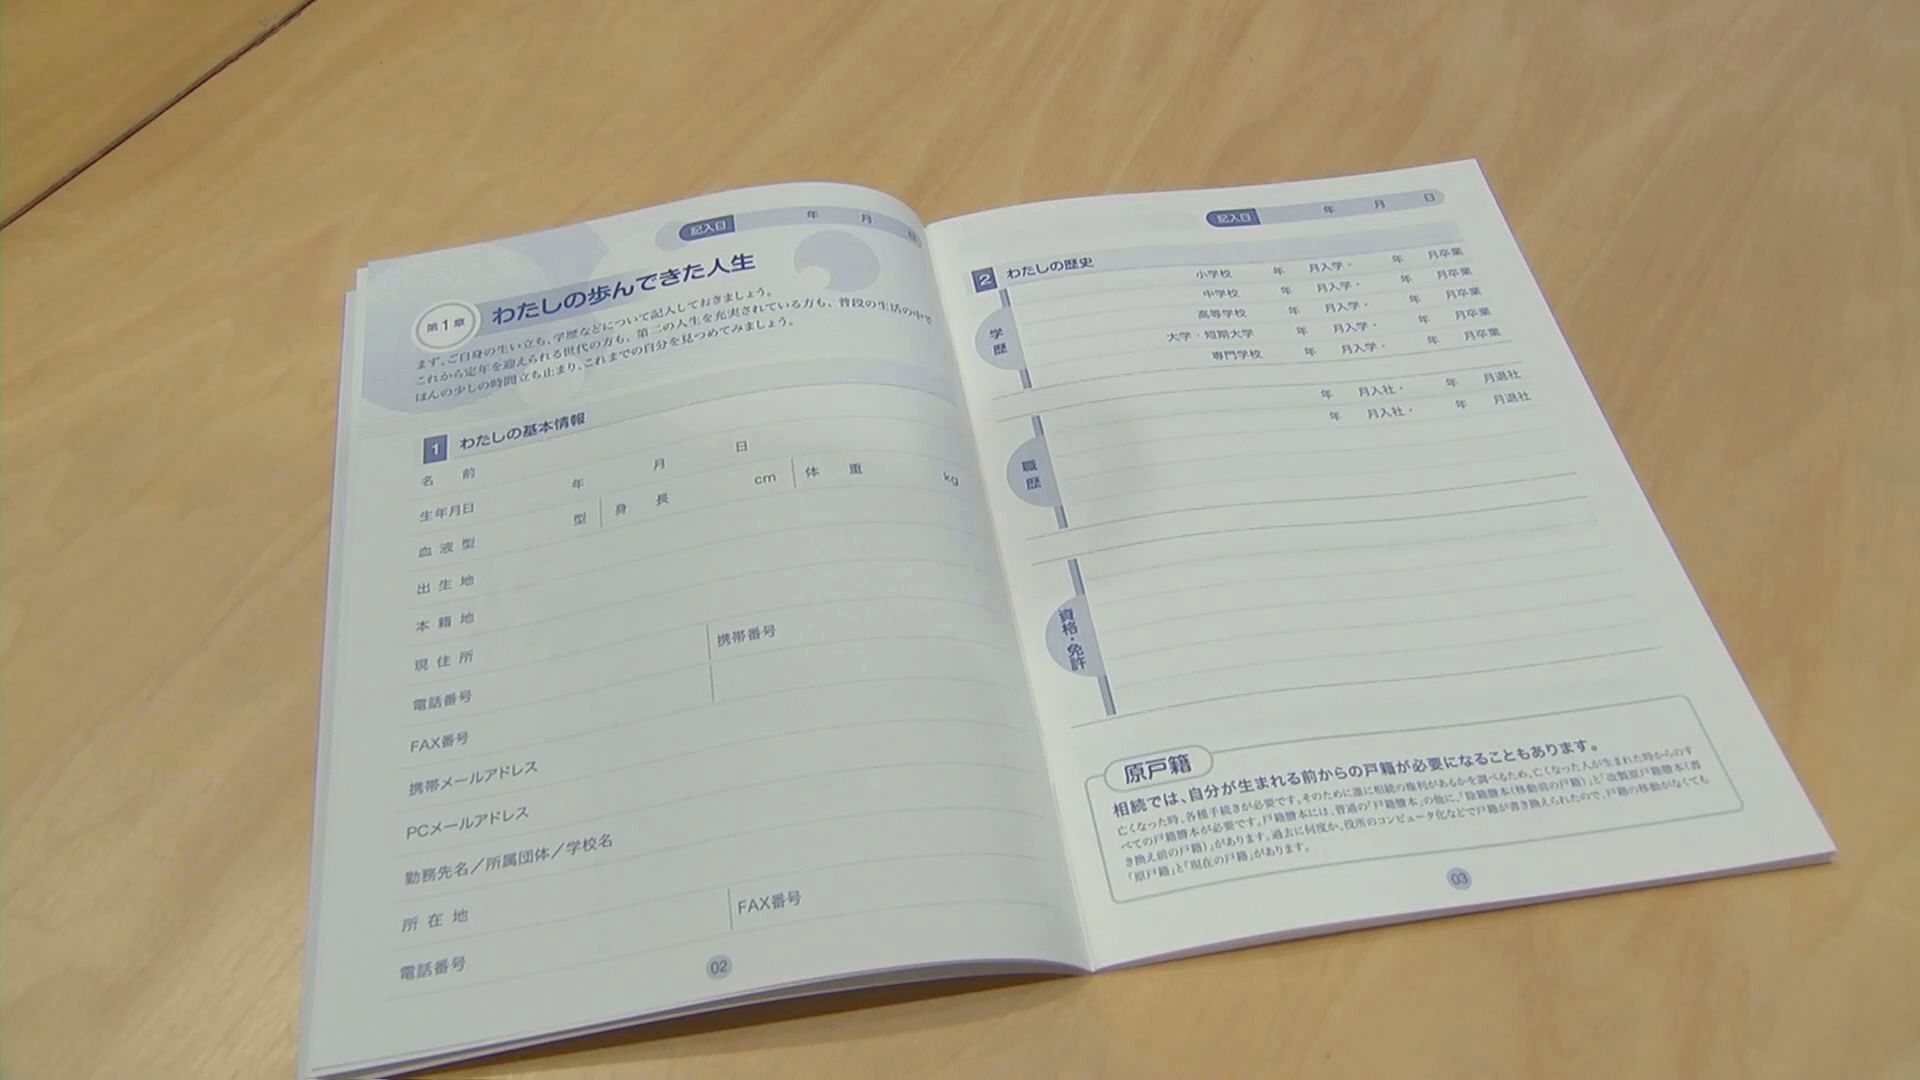 記入日 年 月 日
第1章 わたしの歩んできた人生
まず、ご自身の生い立ち、学歴などについて記入しておきましょう。
これから定年を迎えられる世代の方も、第二の人生を充実されている方も、普段の生活の中で
ほんの少しの時間立ち止まり、これまでの自分を見つめてみましょう。
1 わたしの基本情報
名 前
生年月日 年 月 日
血液型 型 身 長 cm 体 重 kg
出生地
本籍地
現住所
電話番号 携帯番号
FAX番号
携帯メールアドレス
PCメールアドレス
勤務先名／所属団体／学校名
所在地
電話番号 FAX番号
02
記入日 年 月 日
2 わたしの歴史
学歴
小学校 年 月入学・ 年 月卒業
中学校 年 月入学・ 年 月卒業
高等学校 年 月入学・ 年 月卒業
大学・短期大学 年 月入学・ 年 月卒業
専門学校 年 月入学・ 年 月卒業
職歴
年 月入社・ 年 月退社
年 月入社・ 年 月退社
資格・免許
原戸籍
相続では、自分が生まれる前からの戸籍が必要になることもあります。
亡くなった時、各種手続きが必要です。そのために誰に相続の権利があるかを調べるため、亡くなった人が生まれた時からのす
べての戸籍謄本が必要です。戸籍謄本には、普通の「戸籍謄本」の他に、「除籍謄本(移動前の戸籍)」と「改製原戸籍謄本(書
き換え前の戸籍)」があります。過去に何度か、役所のコンピュータ化などで戸籍が書き換えられたので、戸籍の移動がなくても
「原戸籍」と「現在の戸籍」があります。
03